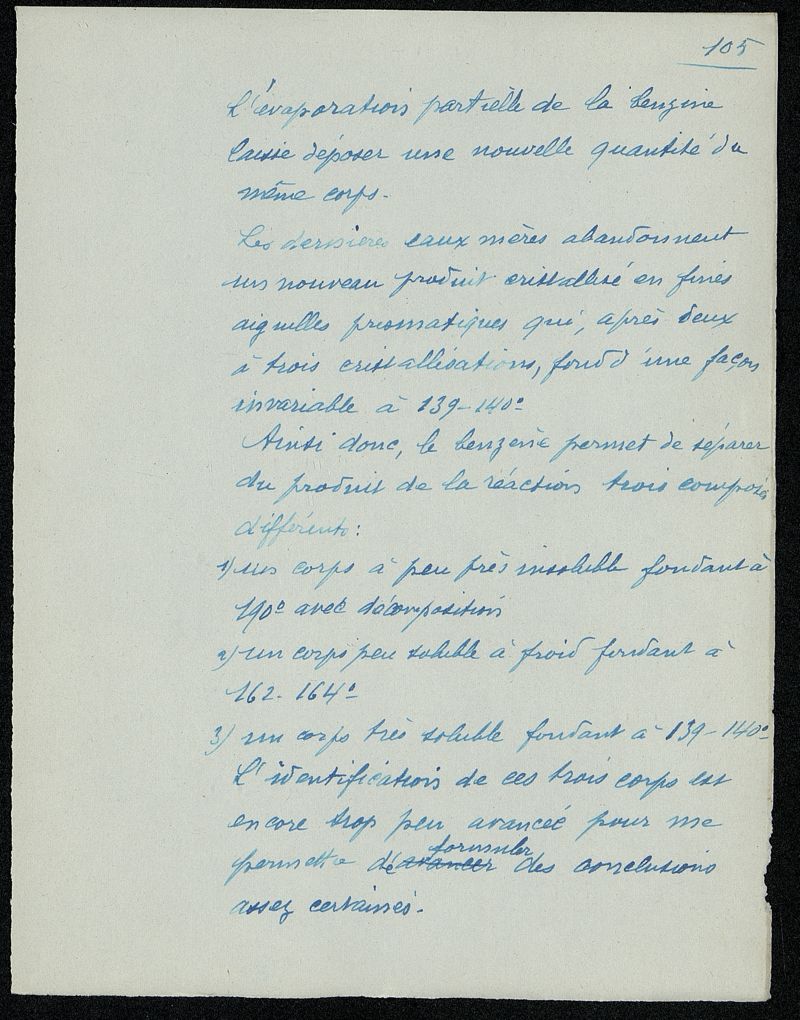 105
L'évaporation partielle de la benzine
laisse déposer une nouvelle quantité du
même corps.
Les dernières eaux mères abandonnent
un nouveau produit cristallisé en fines
aiguilles prismatiques qui, après deux
à trois cristallisations, fond d'une façon
invariable à 139-140°
Ainsi donc, le benzène permet de séparer
du produit de la réaction trois composés
différents:
1) un corps à peu près insoluble fondant à
190° avec décomposition
2) un corps peu soluble à froid fondant à
162-164°
3) un corps très soluble fondant à 139-140°
L'identification de ces trois corps est
encore trop peu avancée pour me
formuler
permettre de avancer des conclusions
assez certaines.